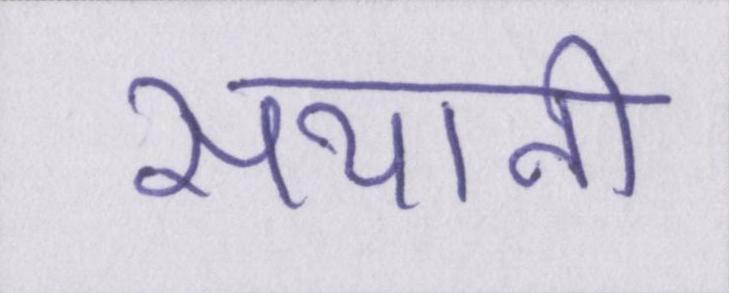 सयानी